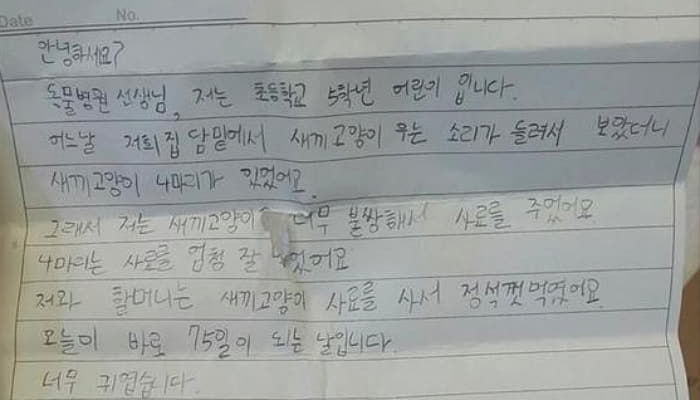 Date No.
안녕하세요?
동물병원 선생님, 저는 초등학교 5학년 어린이 입니다.
어느날 저희집 담밑에서 새끼고양이 우는 소리가 들려서 보았더니
새끼고양이 4마리가 있었어요.
그래서 저는 새끼고양이 너무 불쌍해서 사료를 주었어요
4마리는 사료를 엄청 잘 먹었어요
저와 할머니는 새끼고양이 사료를 사서 정석껏먹였어요.
오늘이 바로 75일이 되는 날입니다.
너무 귀엽습니다.